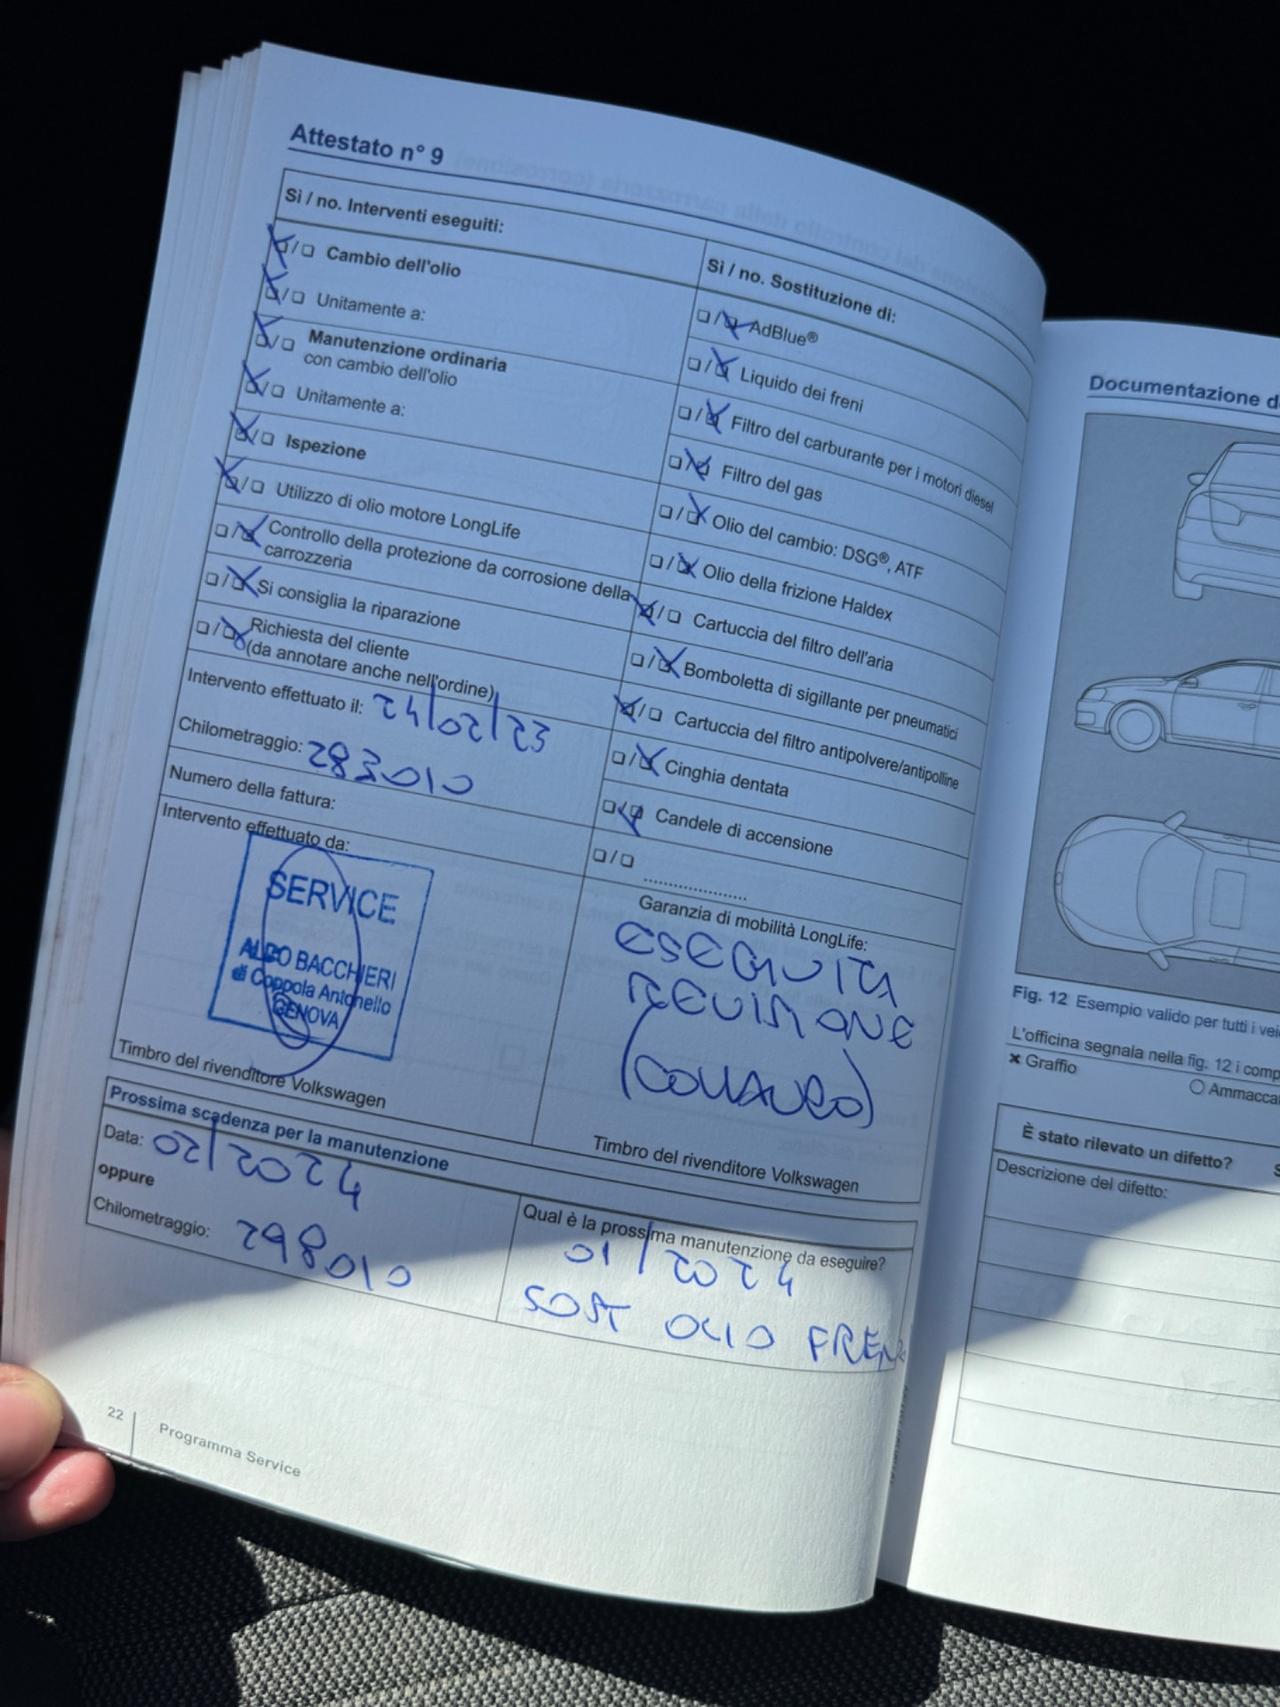 Attestato n° 9
Sì / no. Interventi eseguiti:
Cambio dell'olio
Unitamente a:
Manutenzione ordinaria
con cambio dell'olio
Unitamente a:
Ispezione
Utilizzo di olio motore LongLife
Controllo della protezione da corrosione della
carrozzeria
Si consiglia la riparazione
Richiesta del cliente
(da annotare anche nell'ordine)
Intervento effettuato il: 24/02/23
Chilometraggio: 283010
Numero della fattura:
Intervento effettuato da:
SERVICE
ALDO BACCHIERI
di Coppola Antonello
GENOVA
Timbro del rivenditore Volkswagen
Sì / no. Sostituzione di:
AdBlue®
Liquido dei freni
Filtro del carburante per i motori diesel
Filtro del gas
Olio del cambio: DSG®, ATF
Olio della frizione Haldex
Cartuccia del filtro dell'aria
Bomboletta di sigillante per pneumatici
Cartuccia del filtro antipolvere/antipolline
Cinghia dentata
Candele di accensione
....................
Garanzia di mobilità LongLife:
ESEGUITA
REVISIONE
(COLLAUDO)
Timbro del rivenditore Volkswagen
Prossima scadenza per la manutenzione
Data: 02/2024
oppure
Chilometraggio: 298010
Qual è la prossima manutenzione da eseguire?
01/2024
SOST OLIO FRENI
22
Programma Service
Documentazione d
Fig. 12 Esempio valido per tutti i vei
L'officina segnala nella fig. 12 i comp
× Graffio
○ Ammacca
È stato rilevato un difetto?
S
Descrizione del difetto: